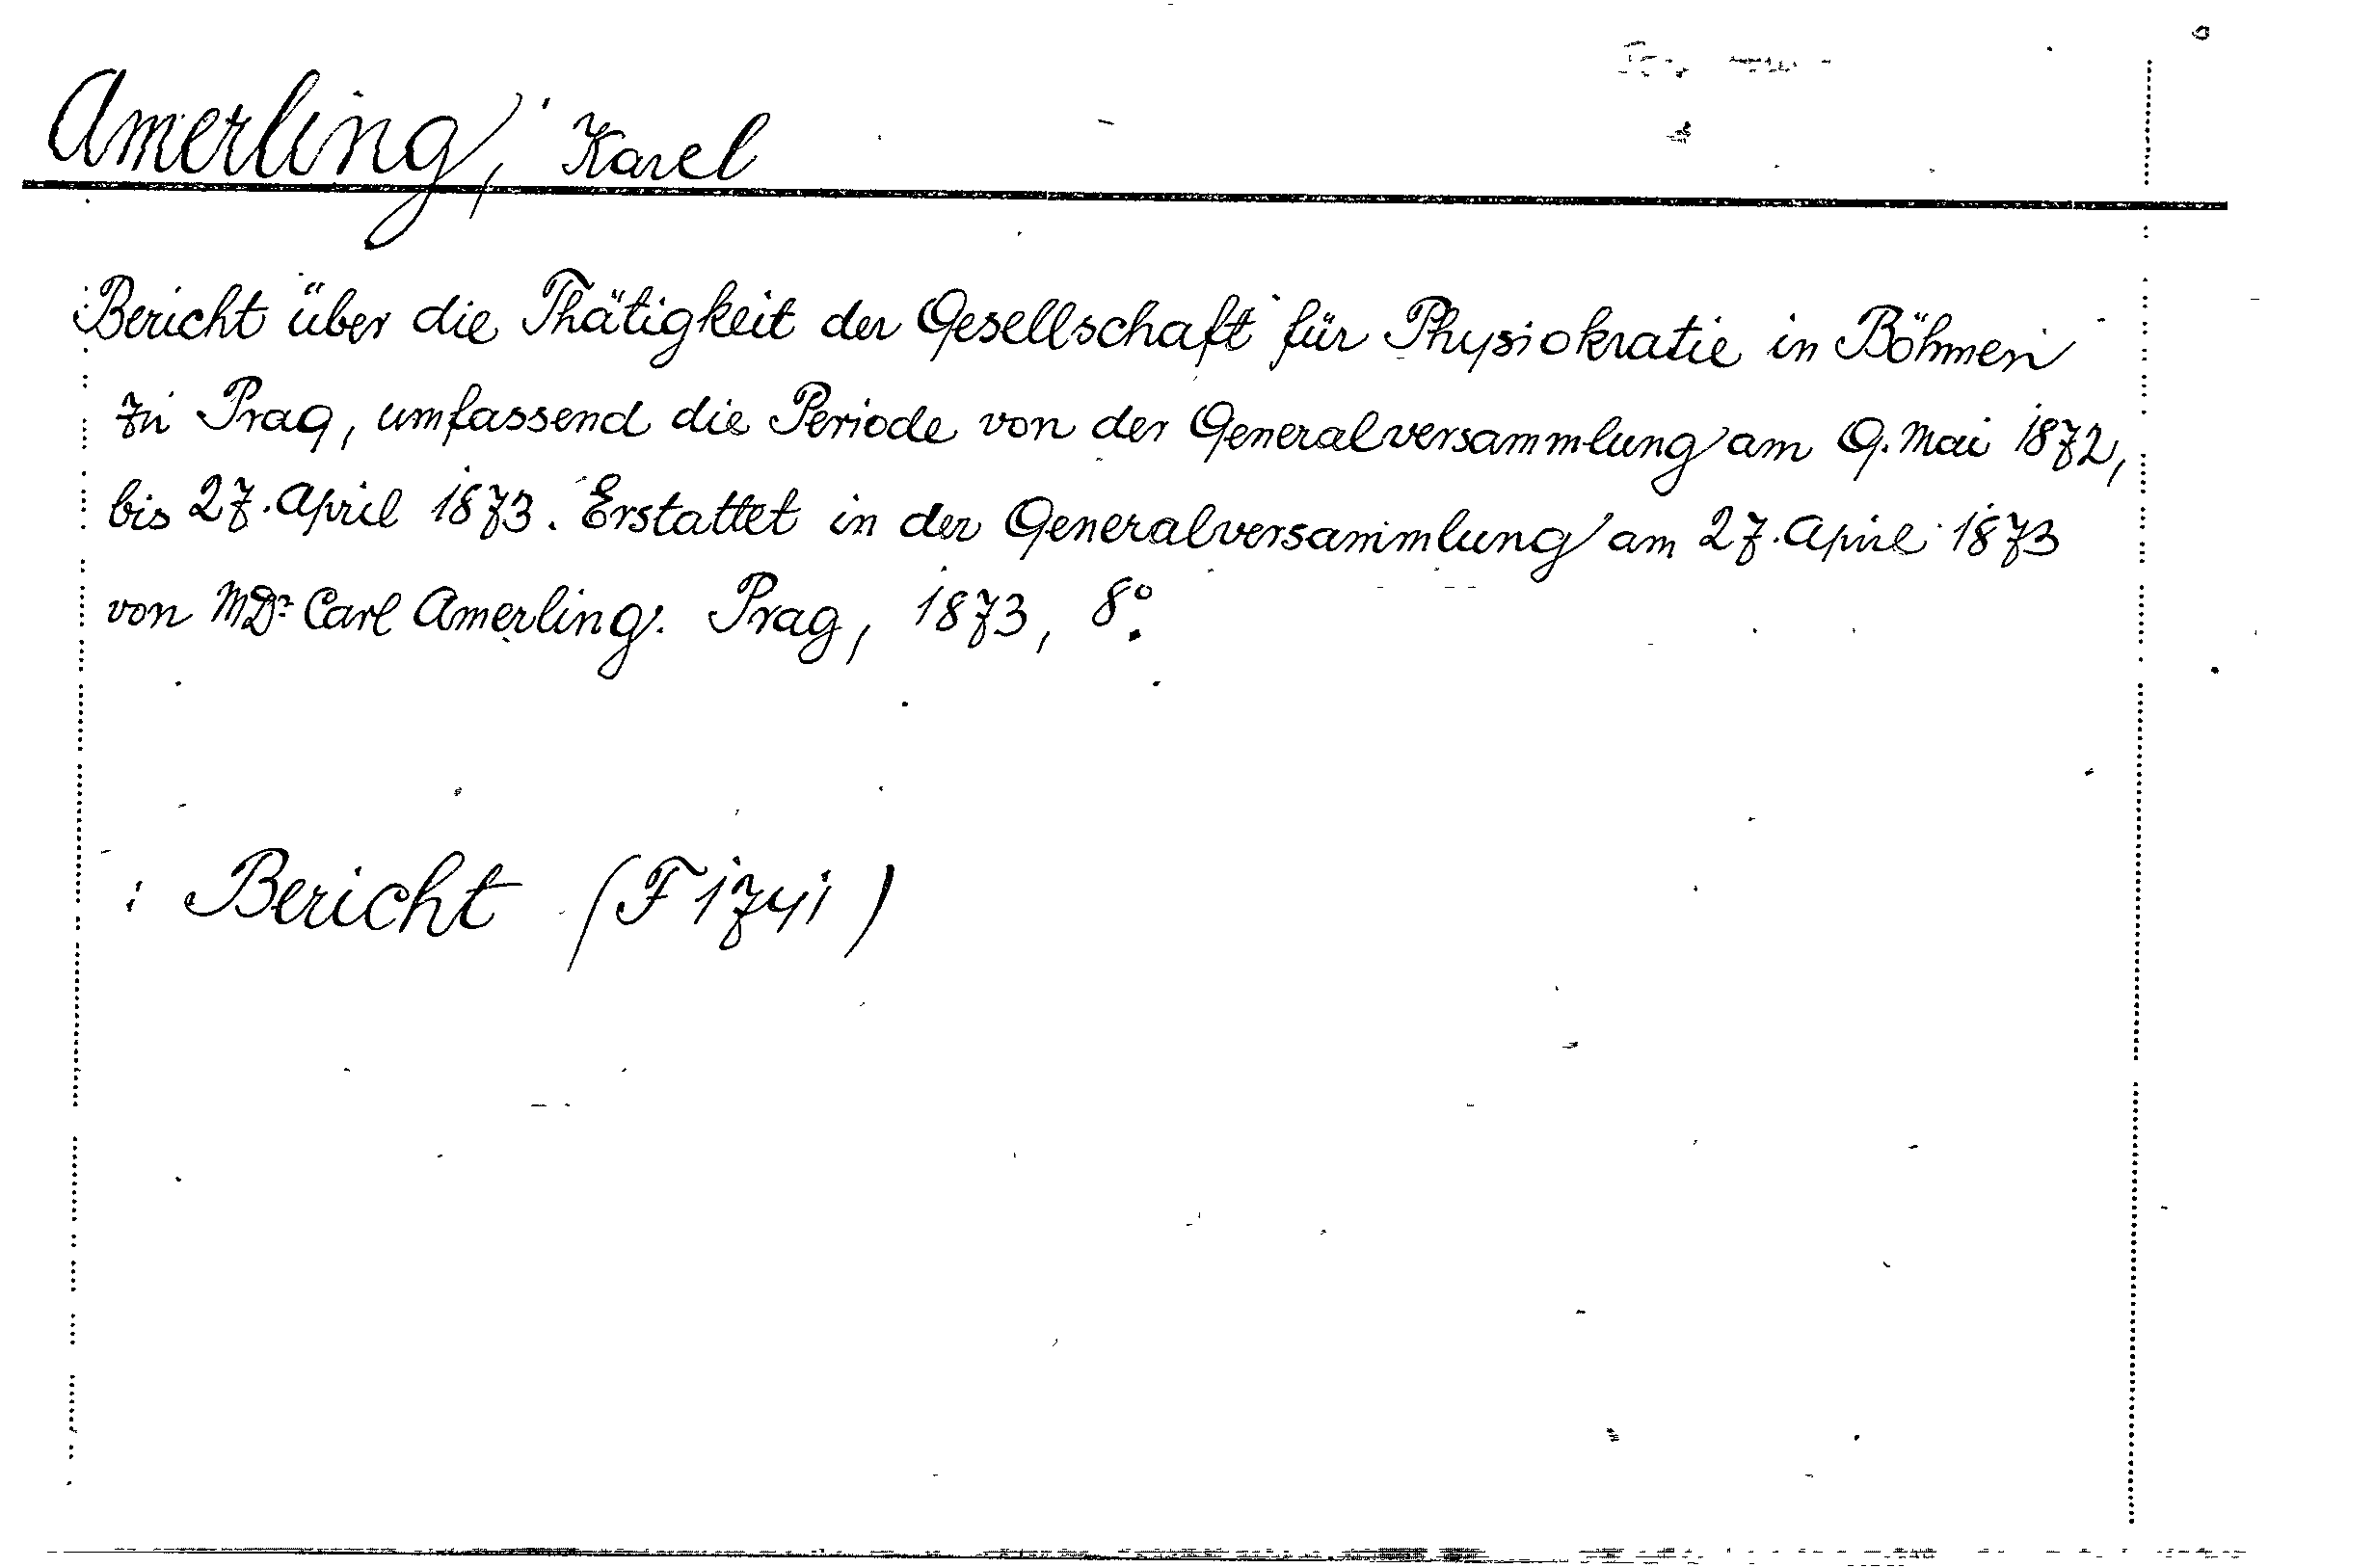 Amerling, Karel
Bericht über die Thätigkeit der Gesellschaft für Physiokratie in Böhmen
zu Prag, umfassend die Periode von der Generalversammlung am 9. Mai 1872,
bis 27. April 1873. Erstattet in der Generalversammlung am 27. April 1873
von MDr. Carl Amerling. Prag, 1873, 8°.
: Bericht (Fizyi)